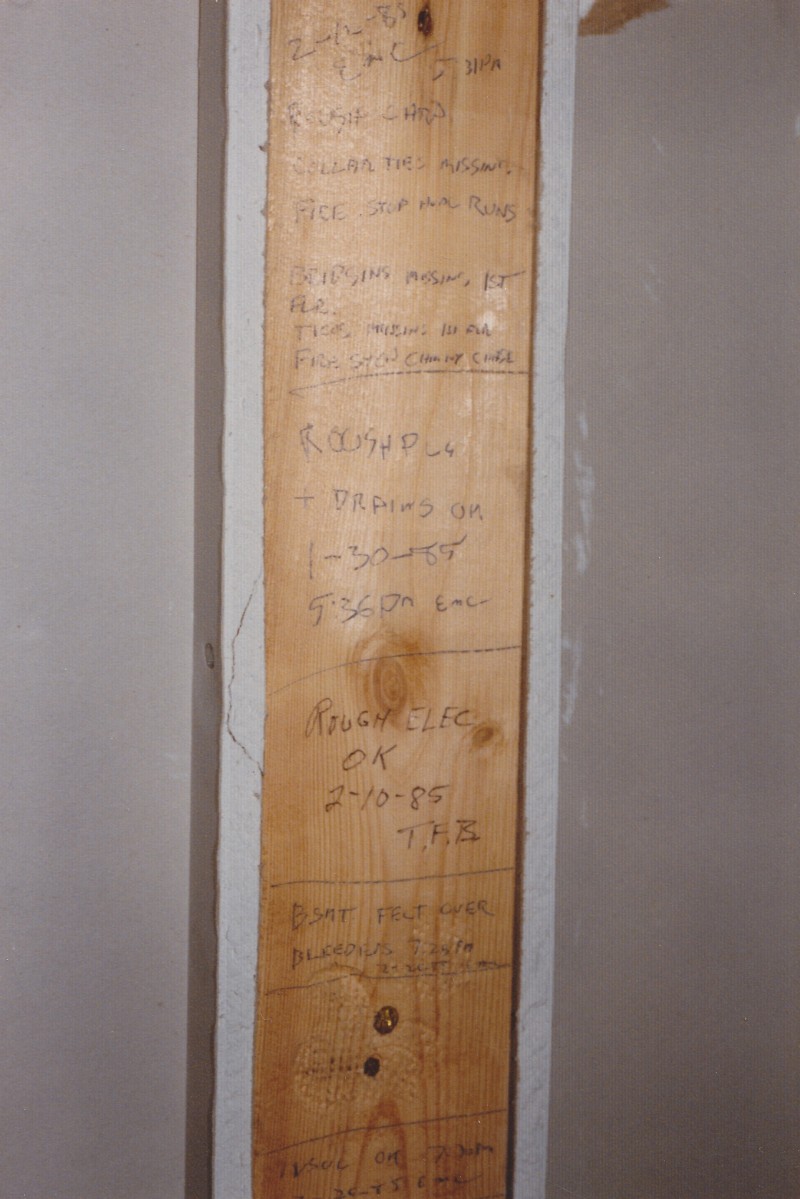 2-12-85
EMC 5:31PM
ROUGH CARP.
COLLAR TIES MISSING.
FIRE STOP RUNS
BRIDGING MISSING, 1ST
FLR.
MISSING
FIRE STOP CHIMNY CHASE
ROUGH PLG
+ DRAINS OK
1-30-85
5:36PM EMC
ROUGH ELEC
OK
2-10-85
T.F.B.
BSMT FELT OVER
INSUL OK
EMC